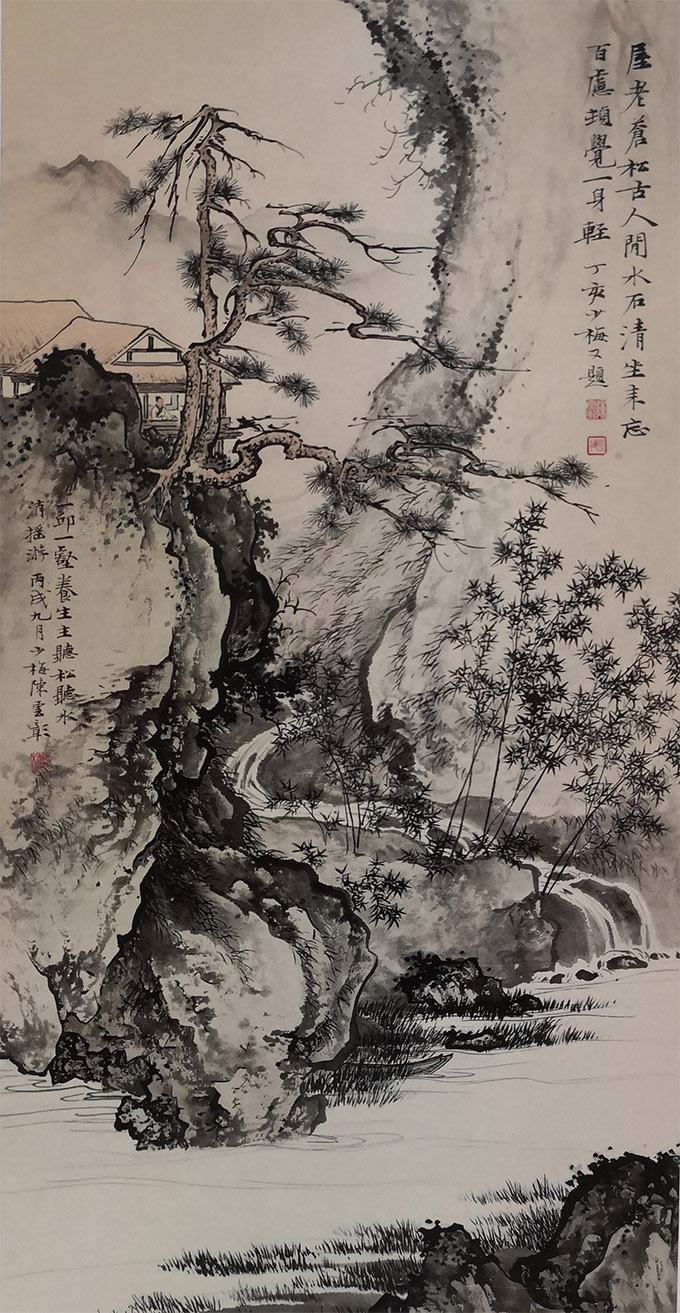 屋老蒼松古人閒水石清生来忘
百慮頓覺一身輕 丁亥少梅又題
一邱一壑養生主聽松聽水
消搖游 丙戌九月少梅陳雲彰